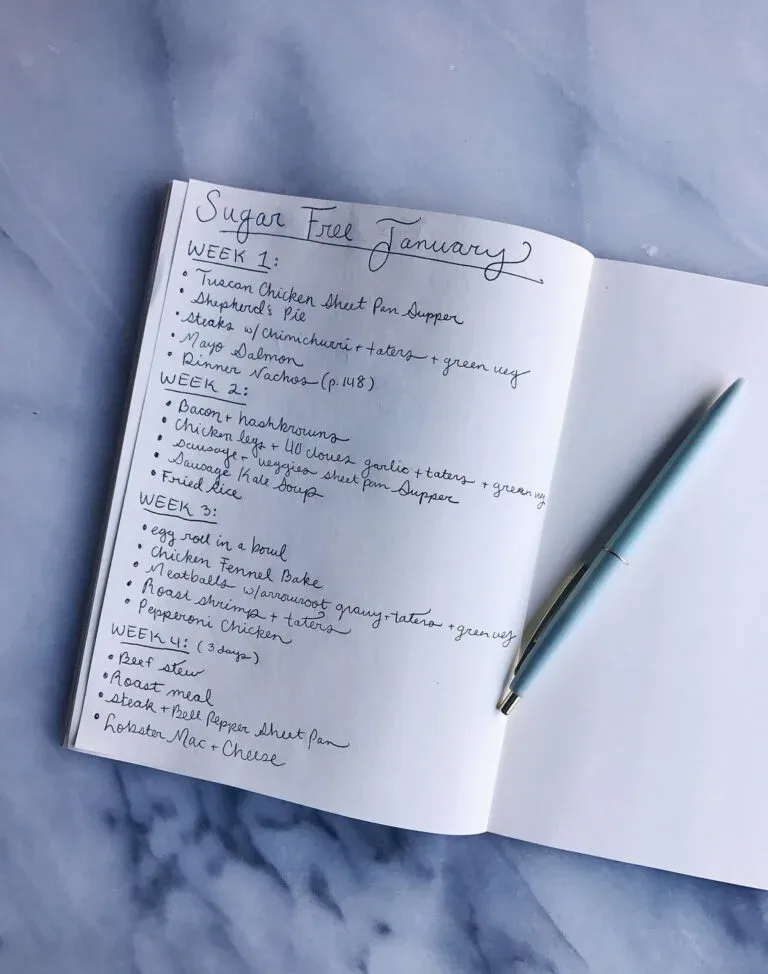 Sugar Free January
WEEK 1:
• Tuscan Chicken Sheet Pan Supper
• Shepherd's Pie
• Steaks w/ Chimichurri + taters + green veg
• Mayo Salmon
• Dinner Nachos (p. 148)
WEEK 2:
• Bacon + hashbrowns
• Chicken legs + 40 cloves garlic + taters + green veg
• Sausage + veggies sheet pan Supper
• Sausage Kale Soup
• Fried Rice
WEEK 3:
• egg roll in a bowl
• Chicken Fennel Bake
• Meatballs w/arrowroot gravy + taters + green veg
• Roast shrimp + taters
• Pepperoni Chicken
WEEK 4: (3 days)
• Beef stew
• Roast meal
• Steak + Bell Pepper Sheet Pan
• Lobster Mac + Cheese